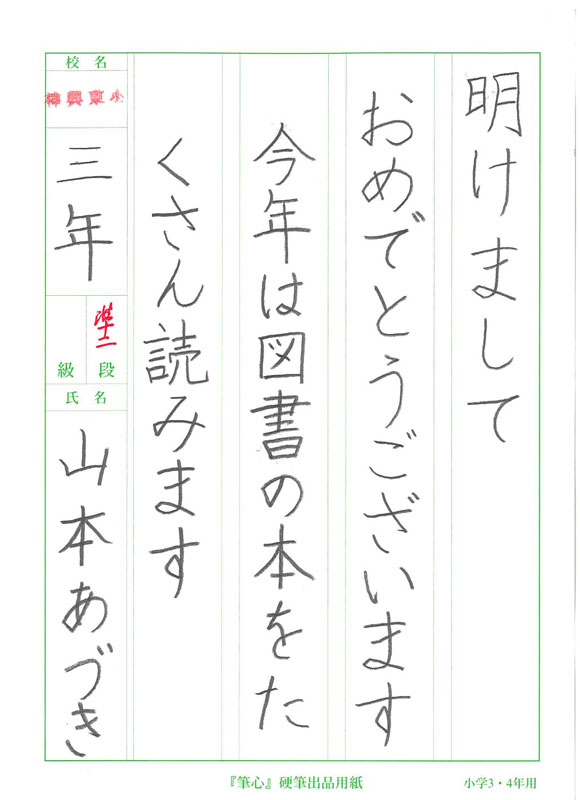 明けまして
おめでとうございます
今年は図書の本をた
くさん読みます
校名
神興東小
三年
準二
段
級
氏名
山本あづき
『筆心』硬筆出品用紙
小学3・4年用